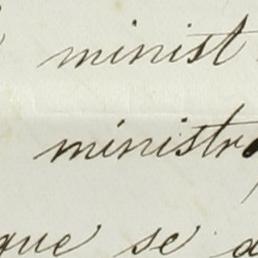 minist
ministr
que se a